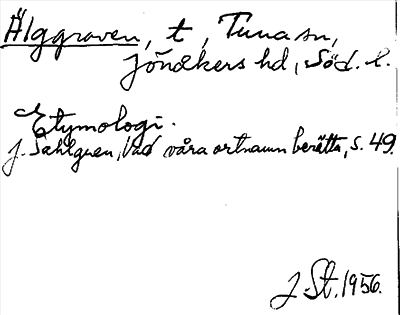 Älggraven, t, Tuna sn,
Jönåkers hd, Söd. l.
Etymologi.
J. Sahlgren, Vad våra ortnamn berätta, s. 49.
J. St. 1956.